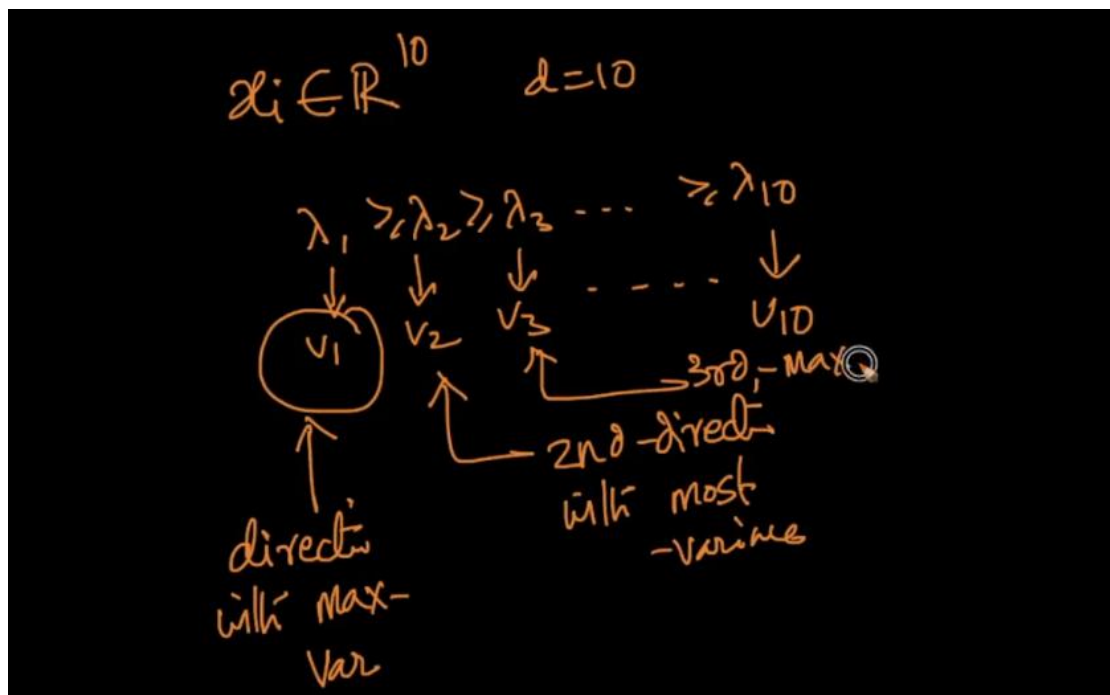 xi ∈ ℝ^10 d=10
λ1 ≥ λ2 ≥ λ3 --- ≥ λ10
↓ ↓ ↓ ----- ↓
v1 v2 v3 v10
3rd,-max
2nd-directi
with most
-variance
directi
with max-
var